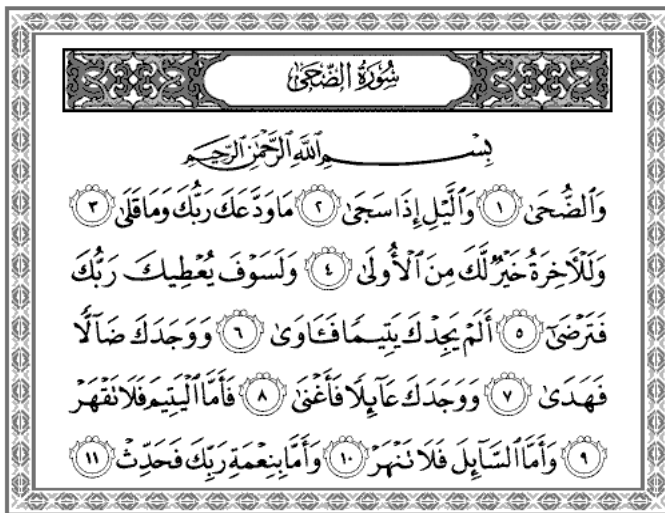 سُورَةُ الضُّحَىٰ
بِسْمِ ٱللَّهِ ٱلرَّحْمَٰنِ ٱلرَّحِيمِ
وَٱلضُّحَىٰ ١ وَٱلَّيْلِ إِذَا سَجَىٰ ٢ مَا وَدَّعَكَ رَبُّكَ وَمَا قَلَىٰ ٣
وَلَلْـَٔاخِرَةُ خَيْرٌ لَّكَ مِنَ ٱلْأُولَىٰ ٤ وَلَسَوْفَ يُعْطِيكَ رَبُّكَ
فَتَرْضَىٰٓ ٥ أَلَمْ يَجِدْكَ يَتِيمًا فَـَٔاوَىٰ ٦ وَوَجَدَكَ ضَآلًّا
فَهَدَىٰ ٧ وَوَجَدَكَ عَآئِلًا فَأَغْنَىٰ ٨ فَأَمَّا ٱلْيَتِيمَ فَلَا تَقْهَرْ
٩ وَأَمَّا ٱلسَّآئِلَ فَلَا تَنْهَرْ ١٠ وَأَمَّا بِنِعْمَةِ رَبِّكَ فَحَدِّثْ ١١